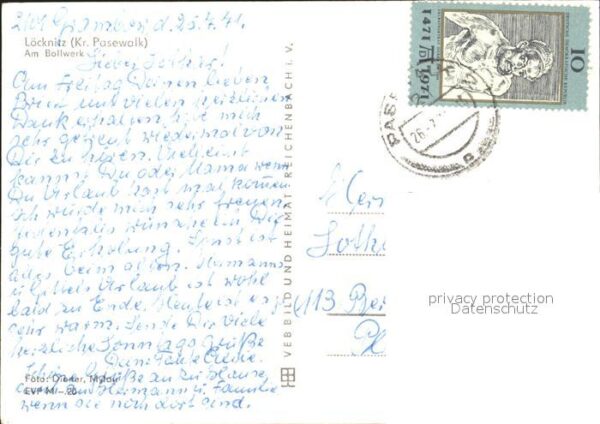 2101 Grambow d. 25.7.71.
Löcknitz (Kr. Pasewalk)
Am Bollwerk
Lieber Lothar!
Am Freitag Deinen lieben
Brief mit vielen herzlichen
Dank erhalten, hat mich
sehr gefreut wiedermal von
Dir zu hören. Vielleicht
kannst Du oder Mama wenn
Du Urlaub hast mal kommen
ich würde mich sehr freuen
jedenfalls wünsche ich Dir
gute Erholung. Sonst ist
alles beim alten. Heimanns
Urlaub ist wohl
bald zu Ende. Heute ist es
sehr warm. Sende Dir viele
herzliche Sonntagsgrüße
Deine Tante
Schöne Grüße an zu Hause
auch an Heimann u. Familie
wenn sie noch dort sind.
Foto: Darr
EVP M -.20
VEB BILD UND HEIMAT REICHENBACH i. V.
1471 1971
10
26.7.
Herr
Loth
113 Ber
privacy protection
Datenschutz